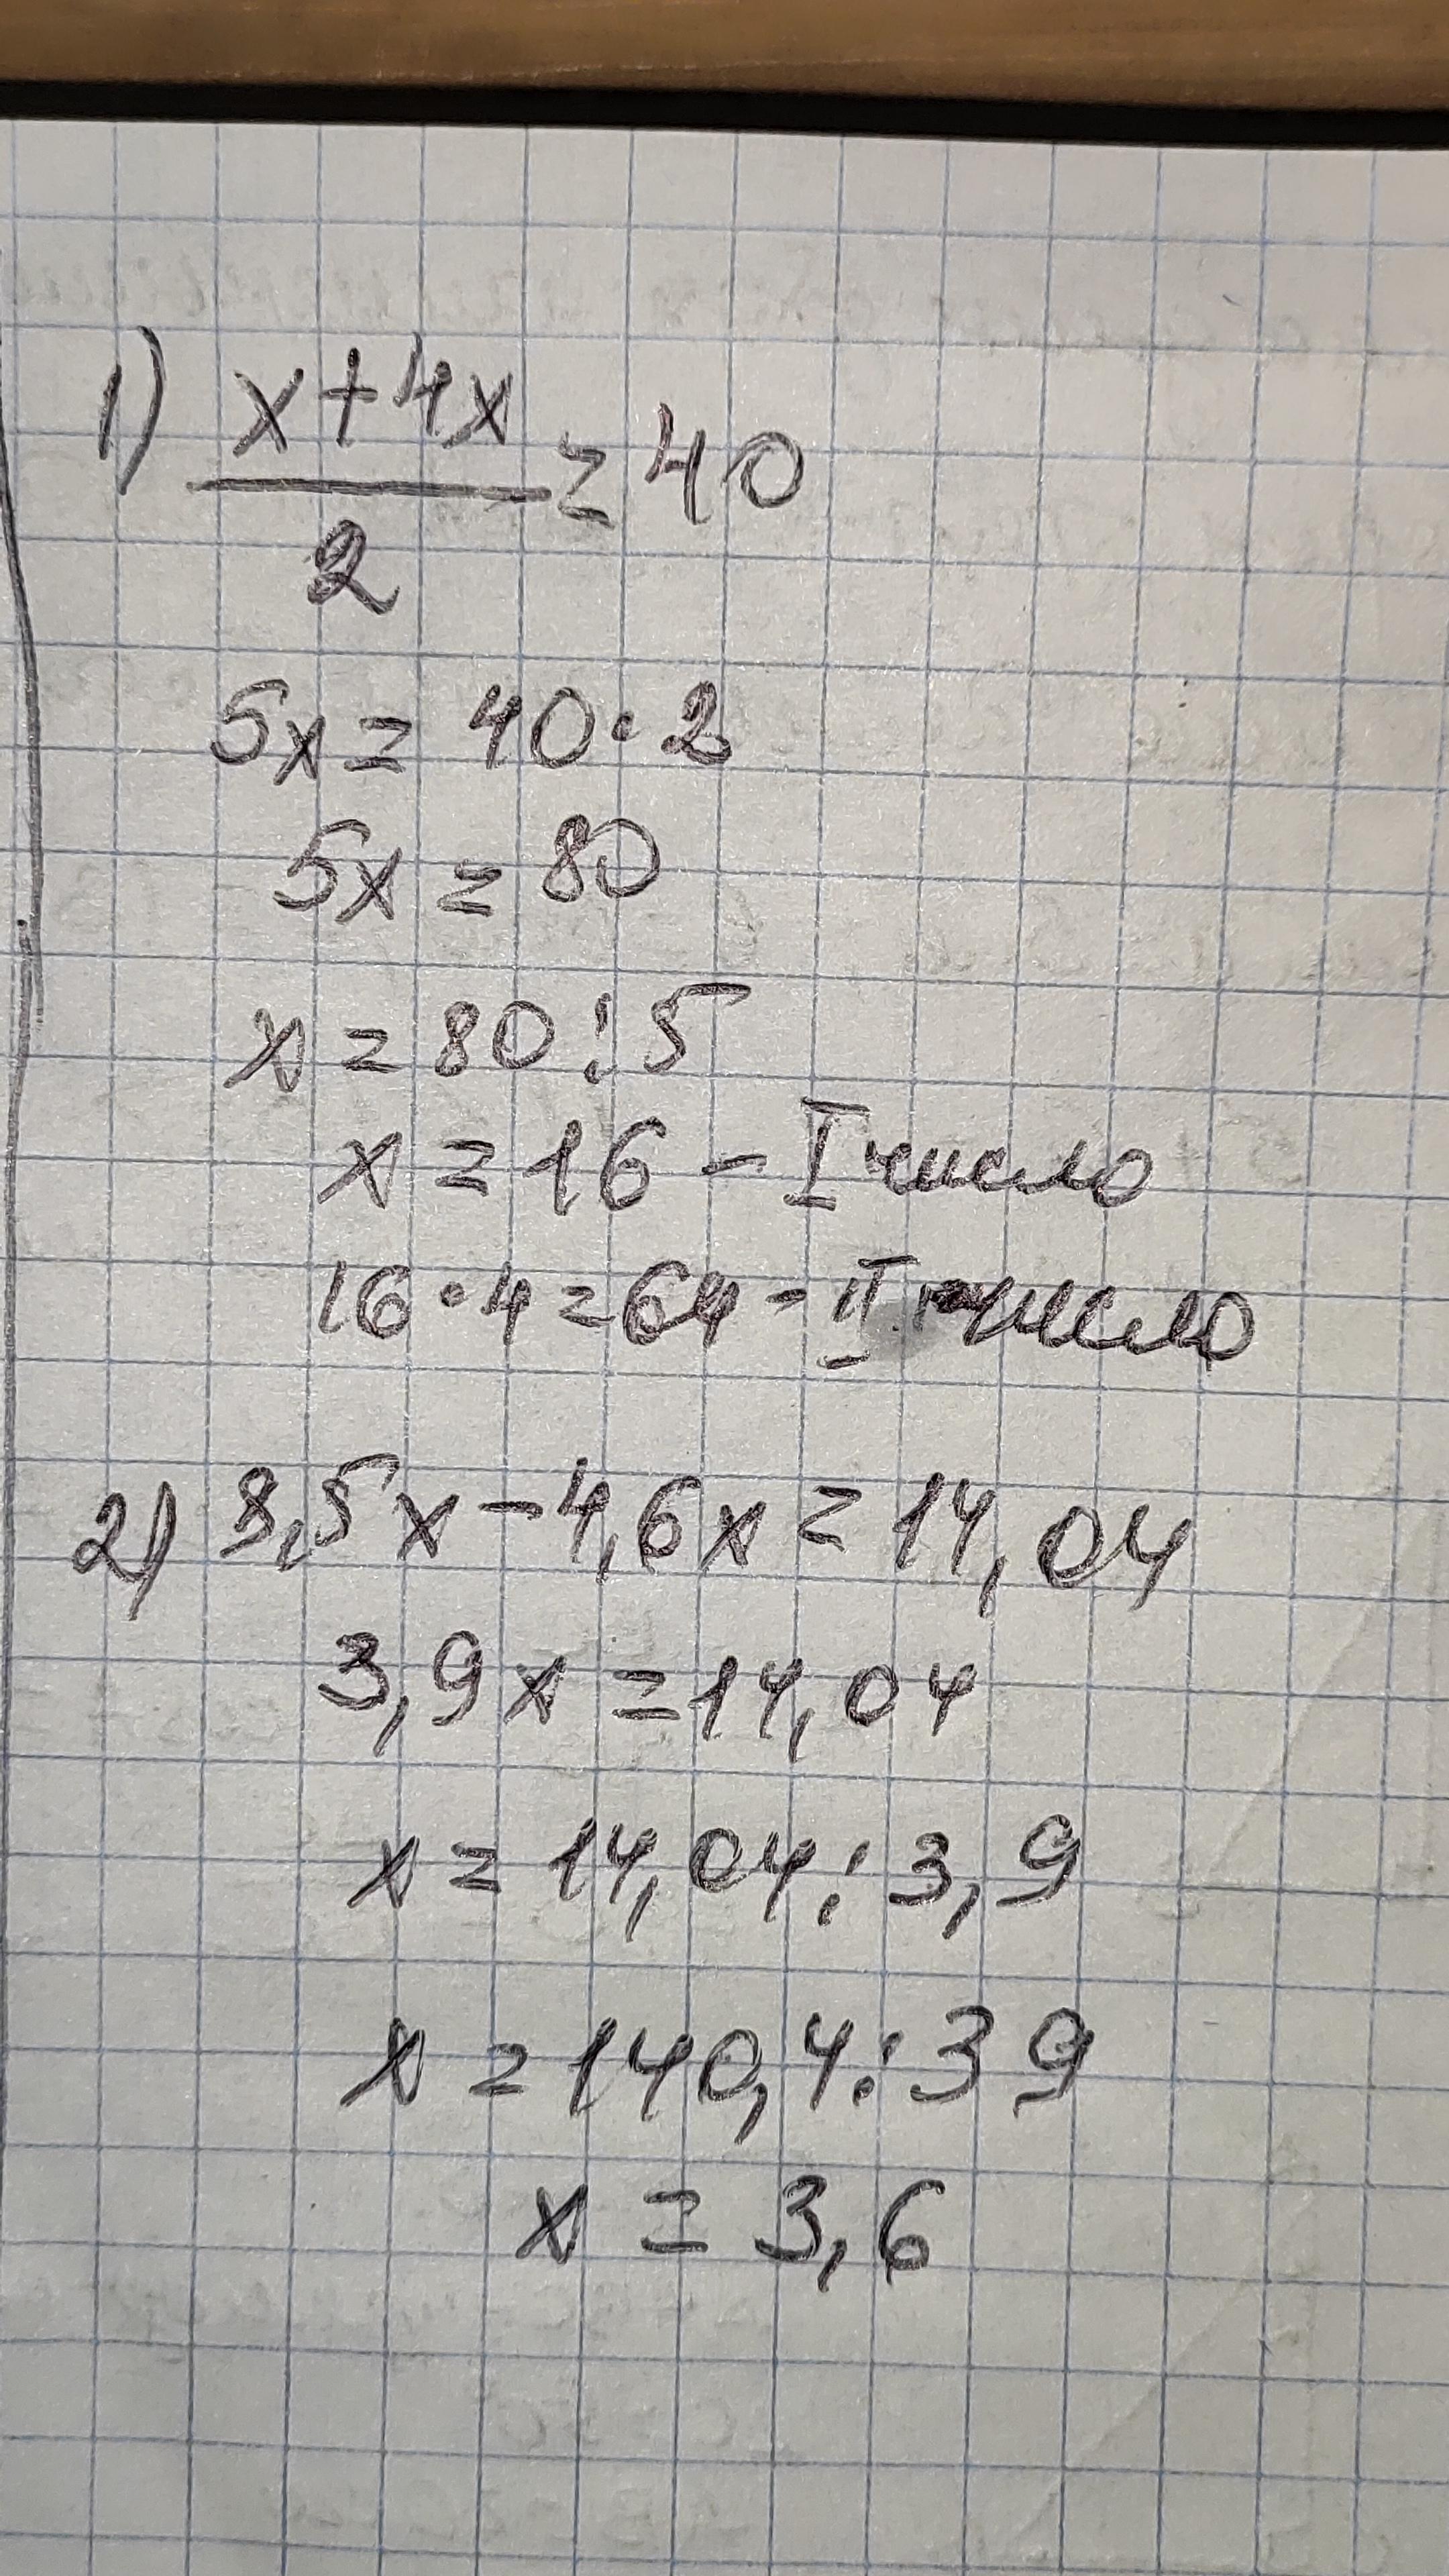 1) x+4x
2 = 40
5x = 40 · 2
5x = 80
x = 80 : 5
x = 16 - I число
16 · 4 = 64 - II число
2) 8,5x - 4,6x = 14,04
3,9x = 14,04
x = 14,04 : 3,9
x = 140,4 : 39
x = 3,6